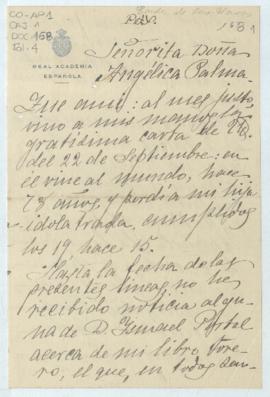 CO-AP1
CAJ 1
DOC 168
Fol-4
P.d.V.
1681
REAL ACADEMIA
ESPAÑOLA
Señorita Doña
Angélica Palma.
amía: al mes justo,
vino a mis manos la
gratísima carta de Vd.
del 22 de Septiembre: en
el vine al mundo, hace
78 años, y perdía mi hija
idolatrada, cumplidos
los 19, hace 15.
Hasta la fecha de las
presentes líneas, no he
recibido noticia algu-
na de D. Ismael Portal
acerca de mi libro
ro, el que, en todas